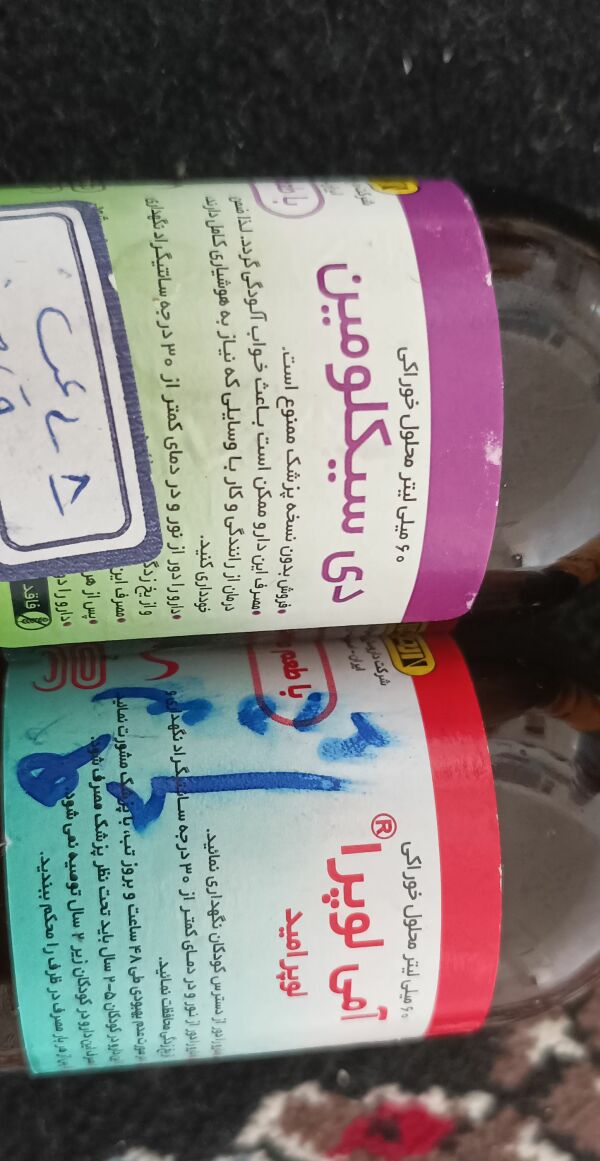 ۶۰ میلی لیتر محلول خوراکی
دی سیکلومین
•فروش بدون نسخه پزشک ممنوع است.
•مصرف این دارو ممکن است باعث خواب آلودگی گردد. لذا ضمن
درمان از رانندگی و کار با وسایلی که نیاز به هوشیاری کامل دارند
خودداری کنید.
•دارو را دور از نور و در دمای کمتر از ۳۰ درجه سانتیگراد نگهداری
و از یخ زدگی
•مصرف این
•پس از هر
•دارو را در
فاقد
۸
۶۰ میلی لیتر محلول خوراکی
آمی لوپرا®
لوپرامید
شرکت
ایران
با طعم
دور از دسترس کودکان نگهداری نمائید.
دور از نور و در دمای کمتر از ۳۰ درجه سانتیگراد نگهداری و
محافظت نمائید.
عدم بهبودی طی ۴۸ ساعت و بروز تب، با پزشک مشورت نمائید
در کودکان ۵-۲ سال باید تحت نظر پزشک مصرف شود.
این دارو در کودکان زیر ۲ سال توصیه نمی شود.
از هر بار مصرف در ظرف را محکم ببندید.